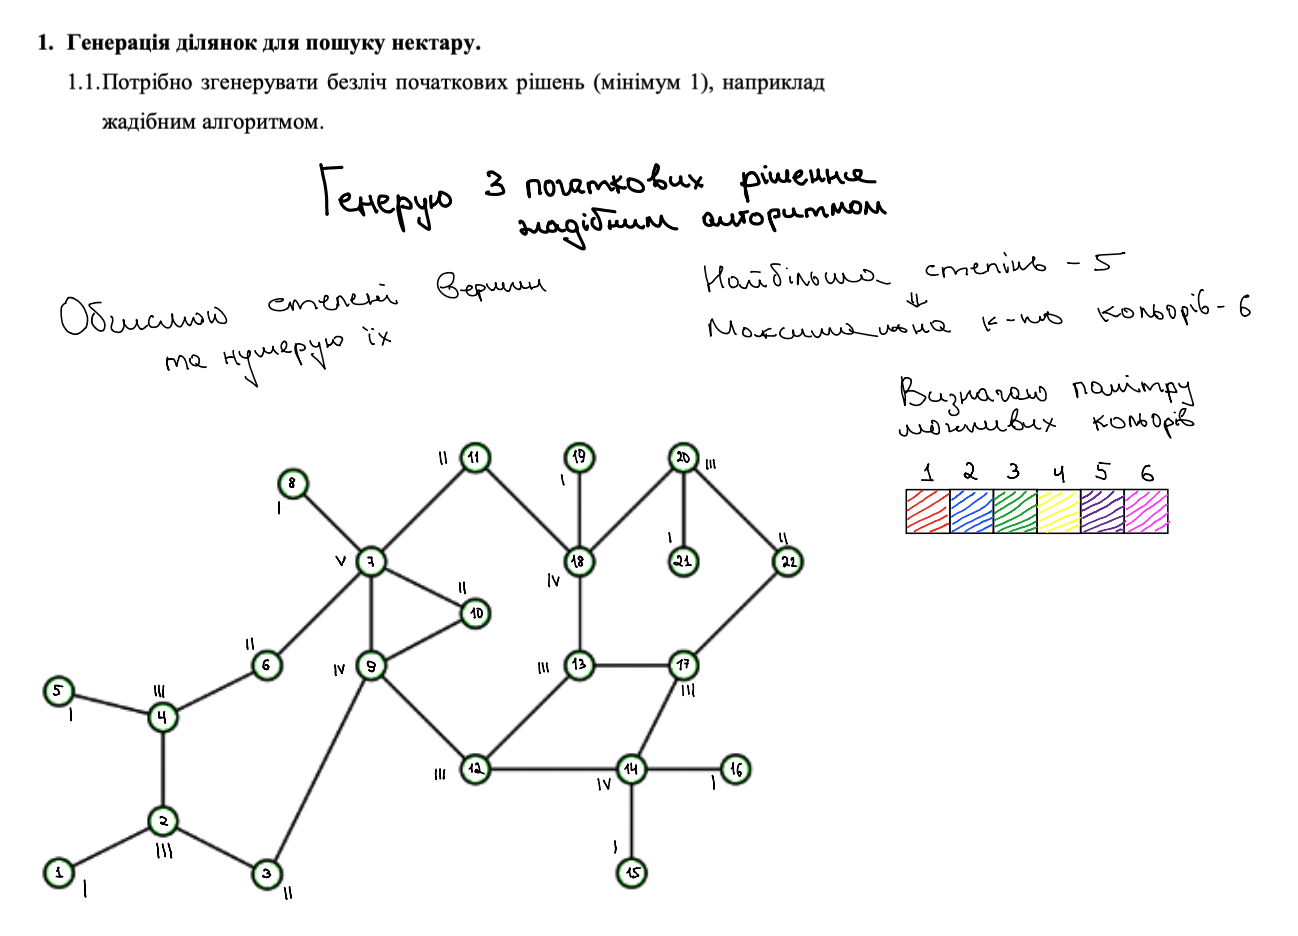 1. Генерація ділянок для пошуку нектару.
1.1.Потрібно згенерувати безліч початкових рішень (мінімум 1), наприклад
жадібним алгоритмом.
Генерую 3 початкових рішення
жадібним алгоритмом
Обчислюю степені вершин
та нумерую їх
Найбільша степінь - 5
⇓
Максимальна к-ть кольорів - 6
Визначаю палітру
можливих кольорів
1 2 3 4 5 6
II 11 19 20 III
8 I
I
V 7 18 21 I 22 II
IV
II 10
II 6 IV 9 III 13 17
III
5 I III 4
III 12 14 16
IV I
2
III
1 I 3 II I 15